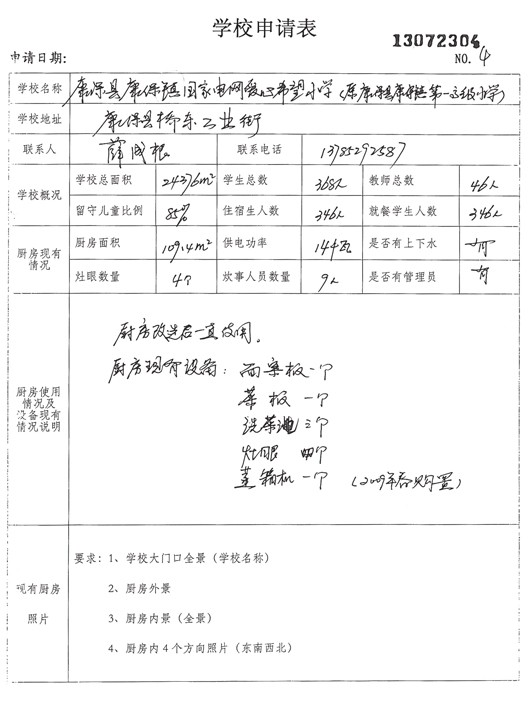 学校申请表
13072304
申请日期:
NO. 4
学校名称 康保县康保镇国家电网爱心希望小学(原康保县康保镇第一完级小学)
学校地址 康保县桥东工业街
联系人 薛成根 联系电话 13785292587
学校概况 学校总面积 24376m² 学生总数 368人 教师总数 46人
留守儿童比例 85% 住宿生人数 346人 就餐学生人数 346人
厨房现有情况 厨房面积 109.4m² 供电功率 14千瓦 是否有上下水 有
灶眼数量 4个 炊事人员数量 9人 是否有管理员 有
厨房使用
情况及
设备现有
情况说明
厨房改造后一直使用。
厨房现有设备: 面案板一个
菜板 一个
洗菜池 三个
灶眼 四个
蒸箱机 一个 (2009年春购置)
现有厨房
照片
要求: 1、学校大门口全景(学校名称)
2、厨房外景
3、厨房内景(全景)
4、厨房内4个方向照片(东南西北)